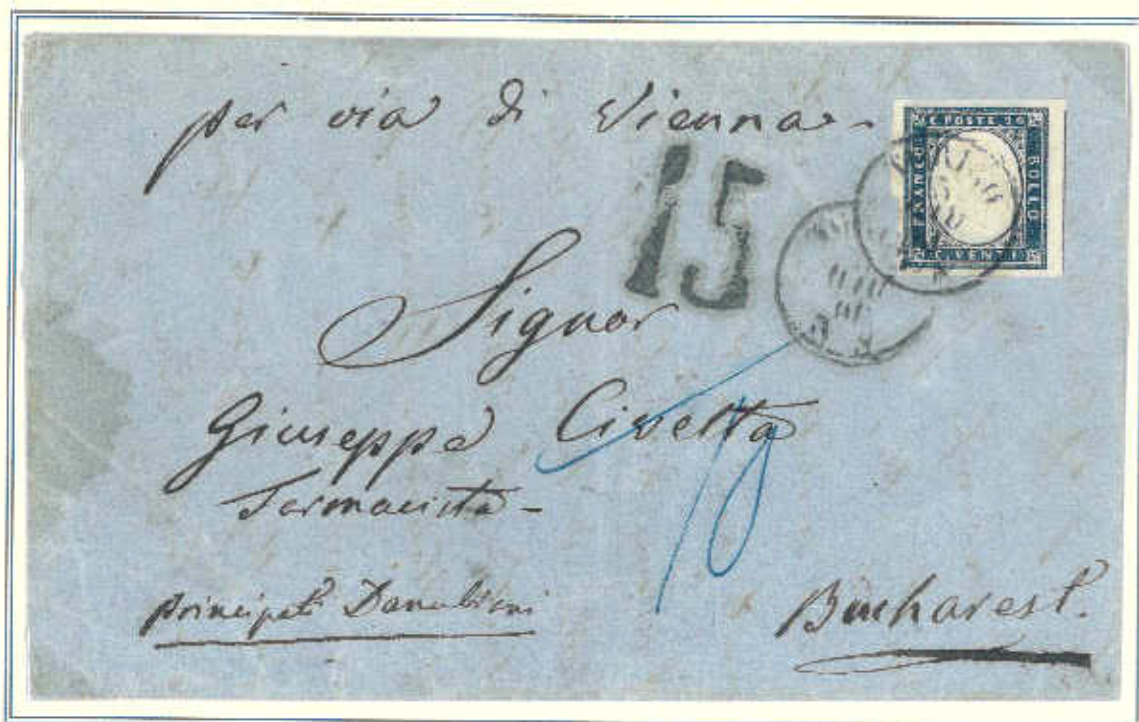 per via di Vienna-
C. POSTE 20
FRANCO
BOLLO
C. VENTI
15
Signor
Giuseppe Civetta
Farmacista-
principati Danubiani
Bucharest.